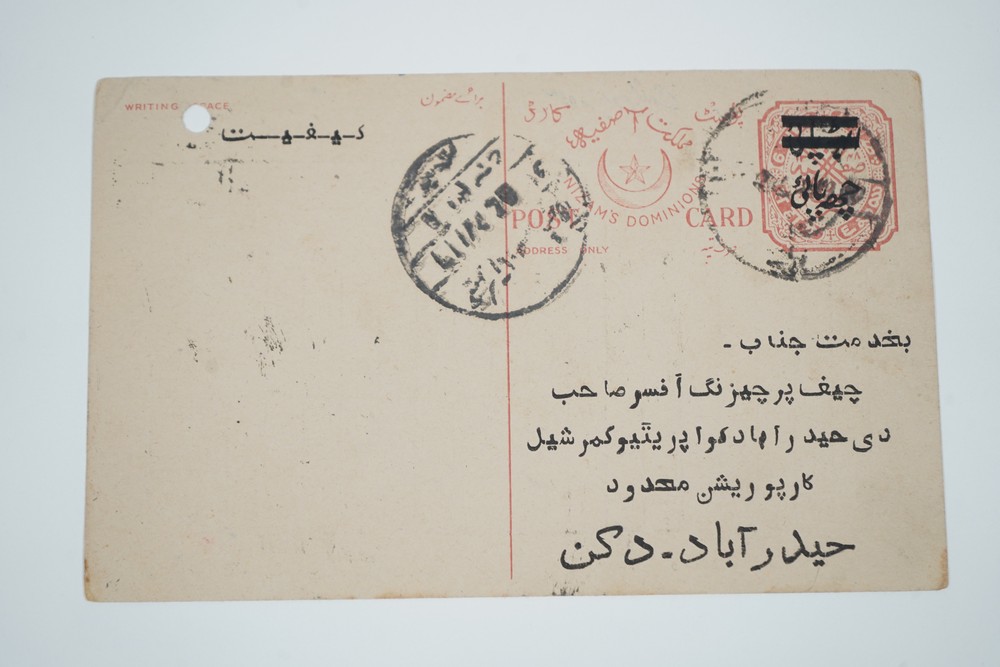 WRITING SPACE
برائے مضمون
کیفیت
پوسٹ کارڈ
مملکت آصفیہ
NIZAM'S DOMINIONS
POST CARD
ADDRESS ONLY
چھ پائی
بخدمت جناب ـ
چیف پرچیزنگ آفسر صاحب
دی حیدرآباد کوا پریٹیو کمرشیل
کارپوریشن محدود
حیدرآباد ـ دکن